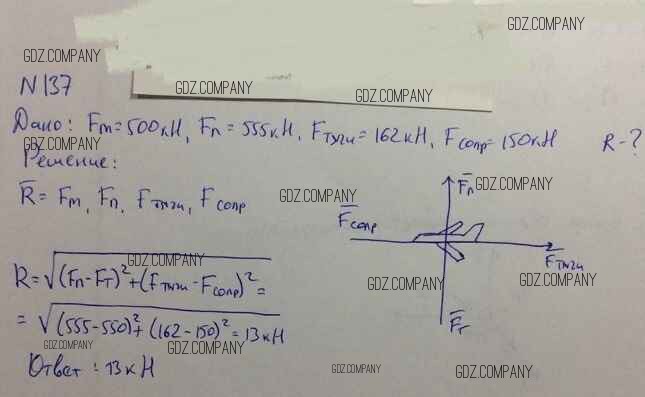 GDZ.COMPANY
GDZ.COMPANY
N 137
GDZ.COMPANY
GDZ.COMPANY
Дано: Fт=500кН, Fп=555кН, Fтяги=162кН, Fсопр=150кН R-?
GDZ.COMPANY
Решение:
R̅ = Fт, Fп, Fтяги, Fсопр
GDZ.COMPANY
F̅п
GDZ.COMPANY
F̅сопр
F̅тяги
GDZ.COMPANY
R=√(Fп-Fт)²+(Fтяги-Fсопр)² =
GDZ.COMPANY
GDZ.COMPANY
= √(555-550)²+(162-150)² = 13кН
F̅т
GDZ.COMPANY
GDZ.COMPANY
Ответ: 13кН
GDZ.COMPANY
GDZ.COMPANY